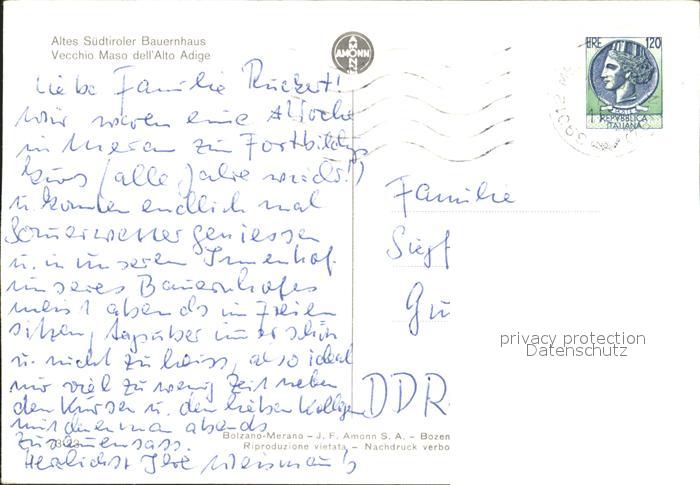 Altes Südtiroler Bauernhaus
Vecchio Maso dell'Alto Adige
AMONN
LIRE 120
POSTE
REPVBBLICA
ITALIANA
Liebe Familie Ruckert!
Wir waren eine Woche
in Meran zum Fortbildgs
kurs (alle Jahre wieder!)
u. konnten endlich mal
Sommerwetter geniessen
u. in unserem Innenhof
unseres Bauernhofes
meist abends im Freien
sitzen, tagsüber immer schön
u. nicht zu heiss, also ideal
nur viel zu wenig Zeit neben
den Kursen u. den lieben Kollegen
mit denen man abends
zusammensass.
Herzlichst Ihre
Familie
Siegf
Gu
DDR
privacy protection
Datenschutz
Bolzano-Merano – J. F. Amonn S. A. – Bozen
Riproduzione vietata – Nachdruck verbo